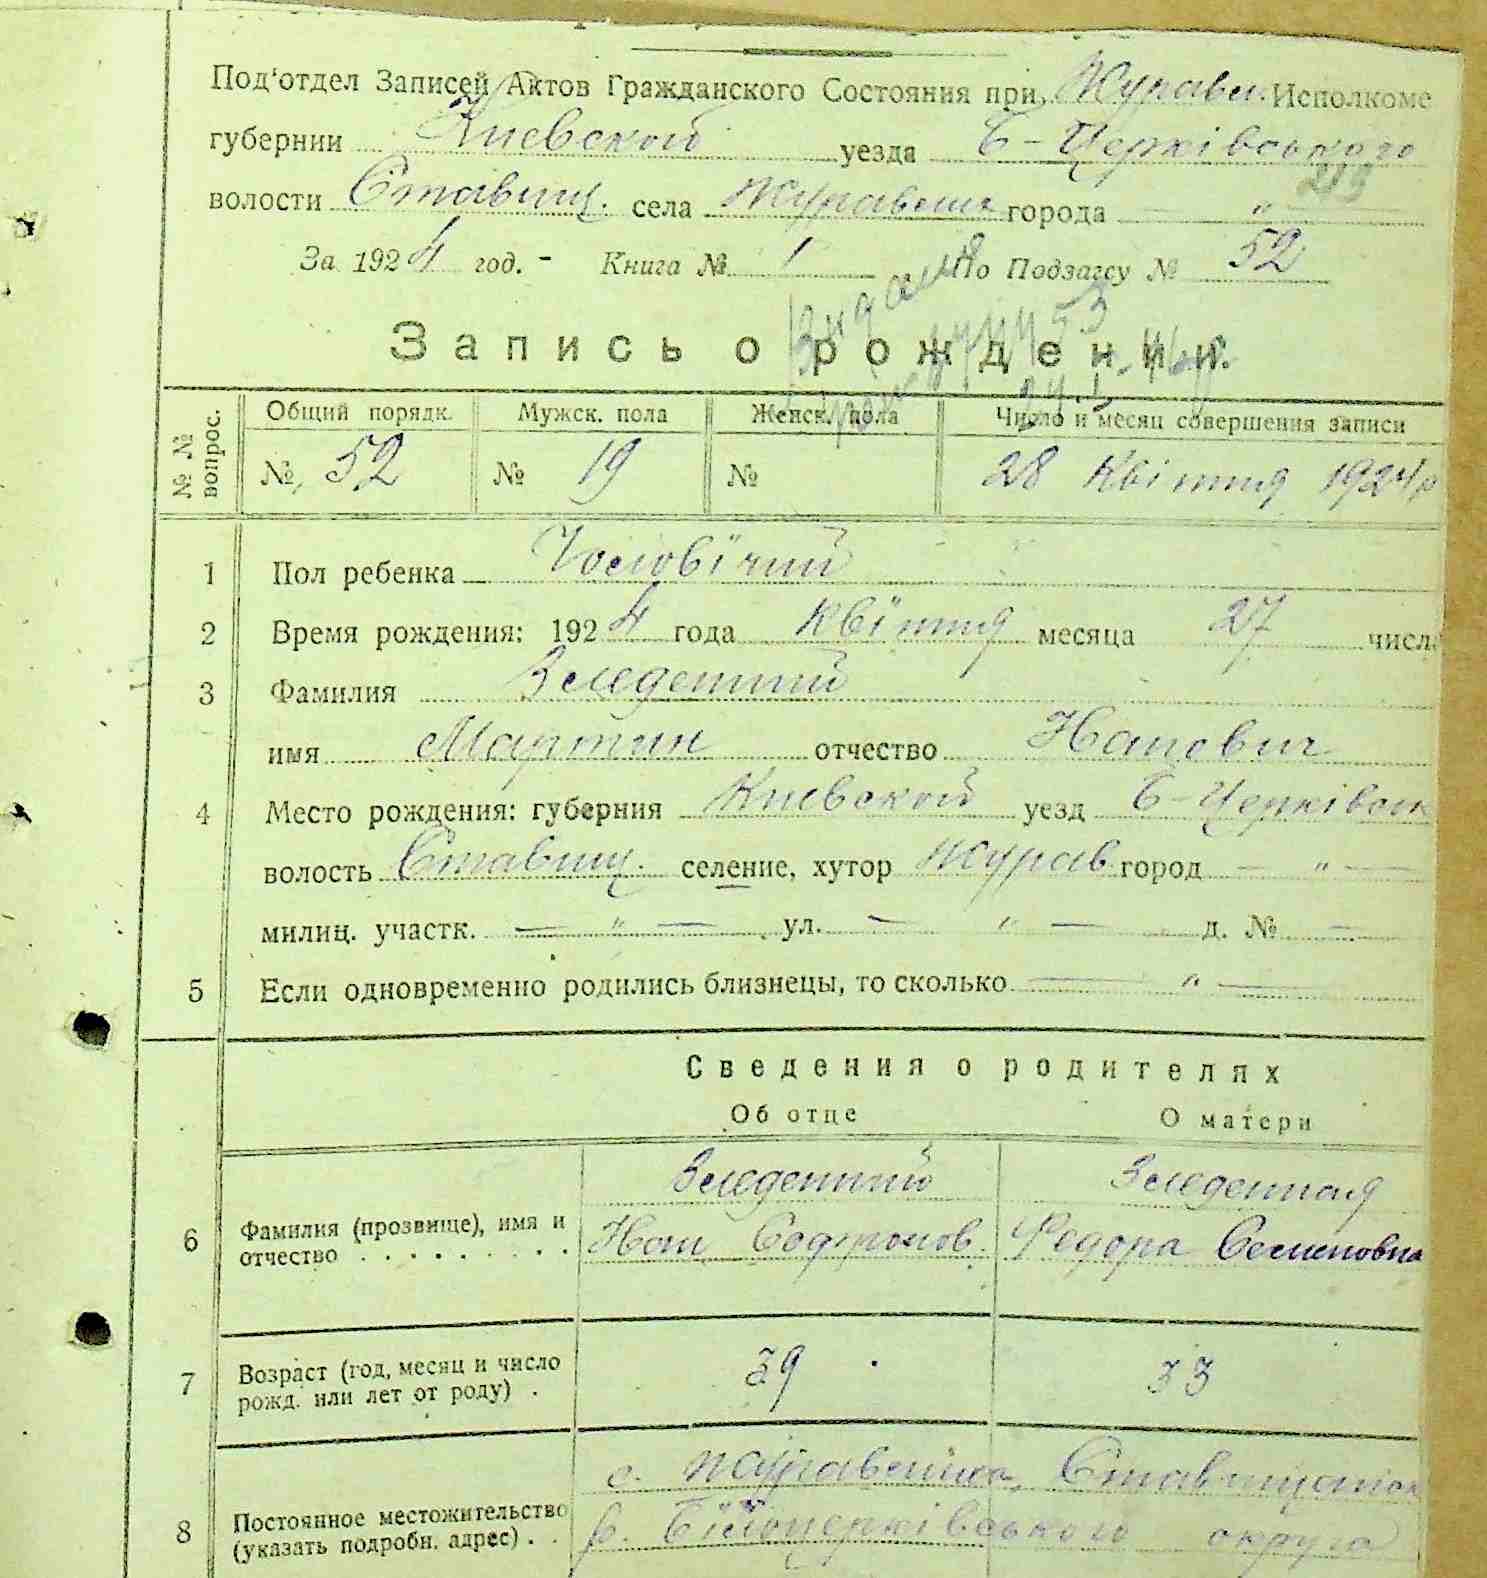 Под'отдел Записей Актов Гражданского Состояния при Журавл. Исполкоме
губернии Киевской уезда Б-Церківського
219
волости Ставищ. села Журавлиха города — " —
За 1924 год. - Книга № 1 По Подзагсу № 52
Запись о рождении.
№ № вопрос. Общий порядк. Мужск. пола Женск. пола Число и месяц совершения записи
№ 52 № 19 № 28 Квітня 1924 р
1 Пол ребенка Чоловічий
2 Время рождения: 1924 года Квітня месяца 27 числ
3 Фамилия Зледенний
имя Мартин отчество Напович
4 Место рождения: губерния Киевской уезд Б-Церківськ
волость Ставищ. селение, хутор Журав город — " —
милиц. участк. — " — ул. — " — д. № —
5 Если одновременно родились близнецы, то сколько — " —
Сведения о родителях
Об отце О матери
Зледенний Зледенная
6 Фамилия (прозвище), имя и отчество Нап Софронов. Федора Семеновна
7 Возраст (год, месяц и число рожд. или лет от роду) . 39 33
с. Журавлиха, Ставищанськ
8 Постоянное местожительство (указать подробн. адрес) . . р. Білоцерківського округа